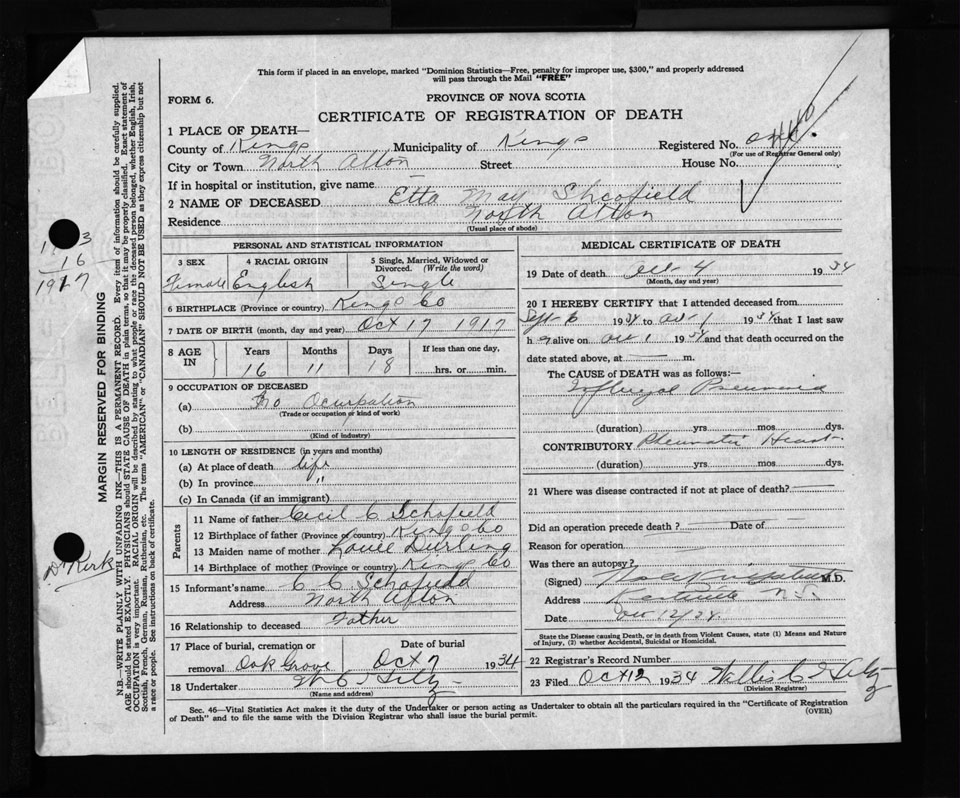 This form if placed in an envelope, marked "Dominion Statistics—Free, penalty for improper use, $300," and properly addressed
will pass through the Mail "FREE"
FORM 6.
PROVINCE OF NOVA SCOTIA
CERTIFICATE OF REGISTRATION OF DEATH
1 PLACE OF DEATH—
County of Kings Municipality of Kings Registered No.
(For use of Registrar General only)
City or Town North Alton Street House No.
If in hospital or institution, give name
2 NAME OF DECEASED Etta May Schofield
Residence North Alton
(Usual place of abode)
PERSONAL AND STATISTICAL INFORMATION
3 SEX 4 RACIAL ORIGIN 5 Single, Married, Widowed or
Divorced. (Write the word)
Female English Single
6 BIRTHPLACE (Province or country) Kings Co
7 DATE OF BIRTH (month, day and year) Oct 17 1917
8 AGE IN Years Months Days If less than one day,
16 11 18 hrs. or min.
9 OCCUPATION OF DECEASED
(a) No Occupation
(Trade or occupation or kind of work)
(b)
(Kind of industry)
10 LENGTH OF RESIDENCE (in years and months)
(a) At place of death life
(b) In province "
(c) In Canada (if an immigrant)
Parents
11 Name of father Cecil C Schofield
12 Birthplace of father (Province or country) Kings Co
13 Maiden name of mother Louie Durling
14 Birthplace of mother (Province or country) Kings Co
15 Informant's name C C Schofield
Address North Alton
16 Relationship to deceased Father
17 Place of burial, cremation or Date of burial
removal Oak Grove Oct 7 1934
18 Undertaker
(Name and address)
MEDICAL CERTIFICATE OF DEATH
19 Date of death Oct 4 1934
(Month, day and year)
20 I HEREBY CERTIFY that I attended deceased from
Sept 6 1934 to Oct 1 1934 that I last saw
h alive on Oct 1 1934 and that death occurred on the
date stated above, at — m.
The CAUSE of DEATH was as follows:—
Pneumonia
(duration) yrs mos dys.
CONTRIBUTORY Rheumatic Heart
(duration) yrs mos dys.
21 Where was disease contracted if not at place of death?
Did an operation precede death? Date of
Reason for operation
Was there an autopsy?
(Signed) M.D.
Address Kentville N.S.
Date Oct 12/34
State the Disease causing Death, or in death from Violent Causes, state (1) Means and Nature
of Injury, (2) whether Accidental, Suicidal or Homicidal.
22 Registrar's Record Number
23 Filed Oct 12 1934
(Division Registrar)
Sec. 46—Vital Statistics Act makes it the duty of the Undertaker or person acting as Undertaker to obtain all the particulars required in the "Certificate of Registration
of Death" and to file the same with the Division Registrar who shall issue the burial permit.
(OVER)
MARGIN RESERVED FOR BINDING
N.B.—WRITE PLAINLY WITH UNFADING INK—THIS IS A PERMANENT RECORD. Every item of information should be carefully supplied.
AGE should be stated EXACTLY. PHYSICIANS should STATE CAUSE OF DEATH in plain terms, so that it may be properly classified. Exact statement of
OCCUPATION is very important. RACIAL ORIGIN will be described by stating to what people or race the deceased person belonged, whether English, Irish,
Scottish, French, German, Russian, Ruthenian, etc. The terms "AMERICAN" or "CANADIAN" SHOULD NOT BE USED as they express citizenship but not
a race or people. See instructions on back of certificate.
16
1917
Dr Kirk